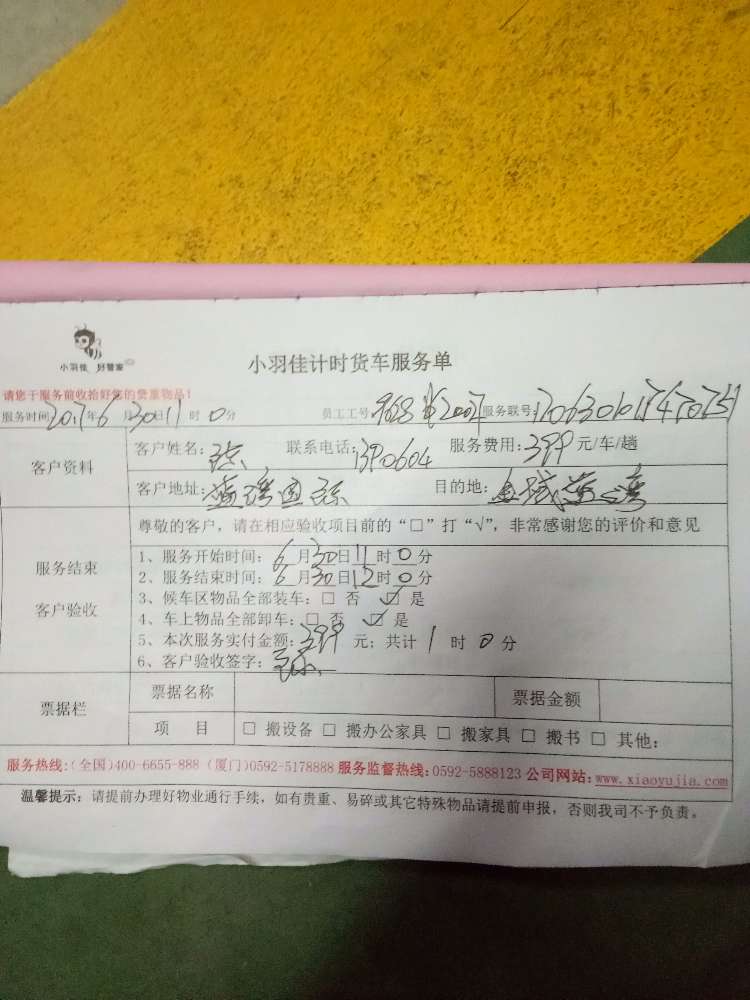 小羽佳 好管家
小羽佳计时货车服务单
请您于服务前收拾好您的贵重物品!
服务时间2017年6月30日11时0分 员工工号 服务联号:
客户资料
客户姓名: 联系电话:1390604 服务费用:399元/车/趟
客户地址: 目的地:
尊敬的客户,请在相应验收项目前的“□”打“√”,非常感谢您的评价和意见
服务结束
客户验收
1、服务开始时间:6月30日11时0分
2、服务结束时间:6月30日12时0分
3、候车区物品全部装车:□ 否 ☑ 是
4、车上物品全部卸车:□ 否 ☑ 是
5、本次服务实付金额:399元;共计1时0分
6、客户验收签字:
票据栏
票据名称 票据金额
项 目 □ 搬设备 □ 搬办公家具 □ 搬家具 □ 搬书 □ 其他:
服务热线:(全国)400-6655-888 (厦门)0592-5178888 服务监督热线:0592-5888123 公司网站:www.xiaoyujia.com
温馨提示:请提前办理好物业通行手续,如有贵重、易碎或其它特殊物品请提前申报,否则我司不予负责。